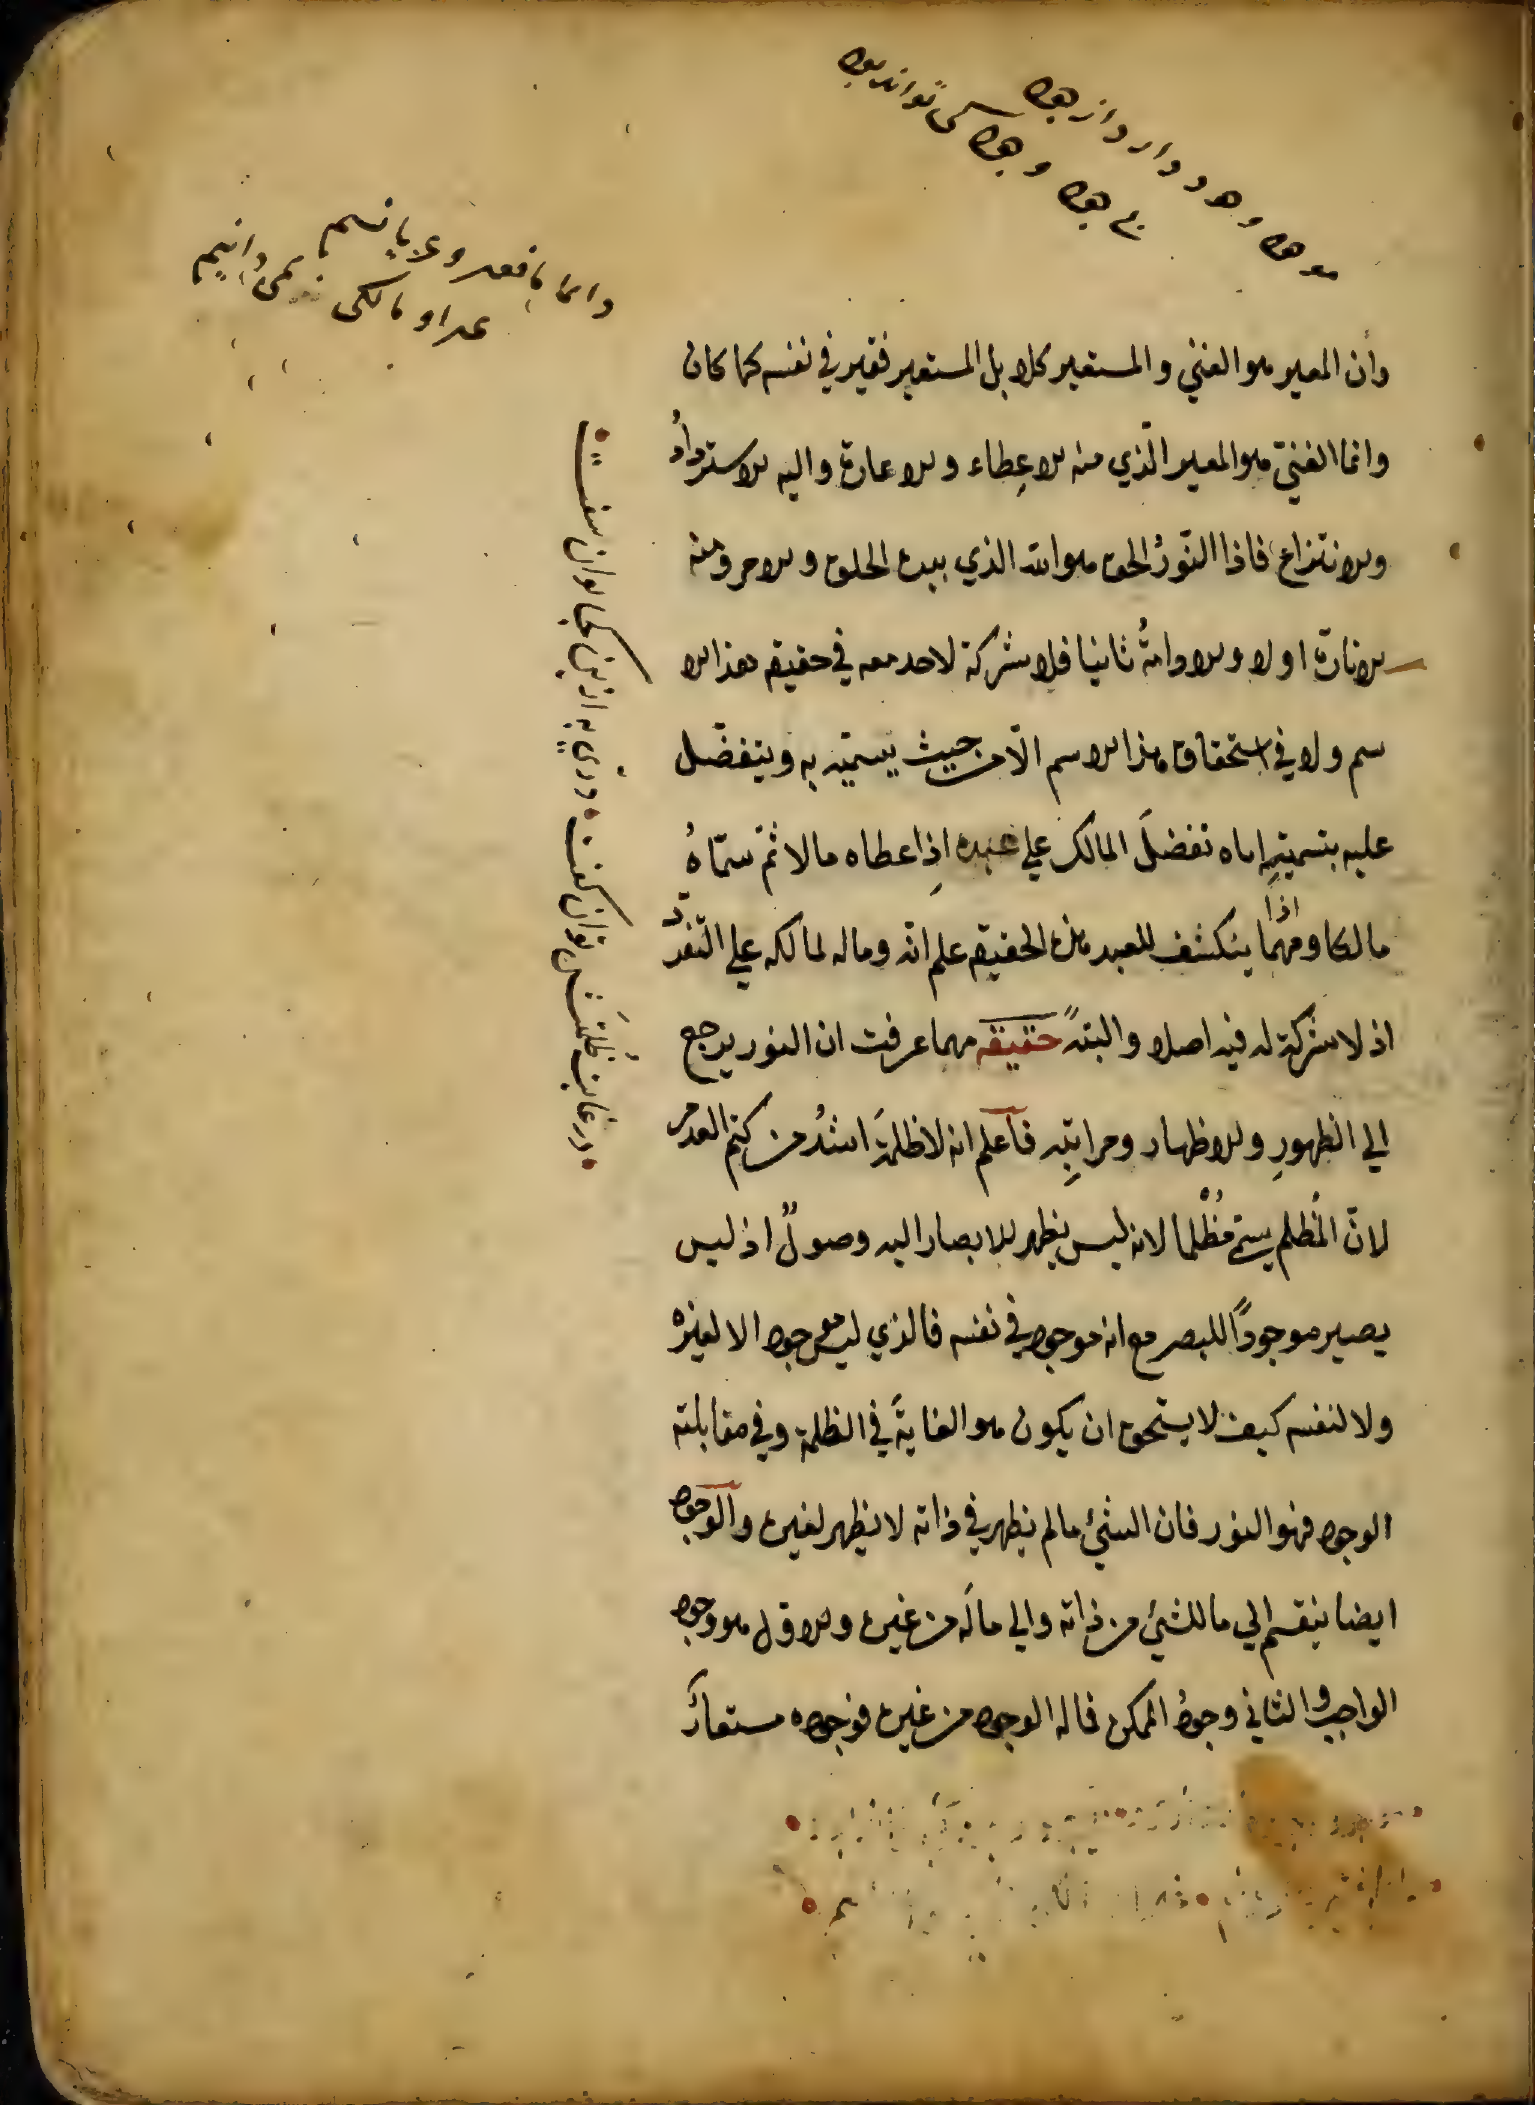 موجود وجود دارد از وجود
بی وجود وجود کس نتواند بود
دائما با فقر و عریانیم
عبد او مالکی نمی دانیم
وأن المعير هو الغني والمستعير كلا بل المستعير فقير في نفسه كما كان
وانما الغنيّ هو المعير الّذي منه الاعِطاء والاعارة واليه الاستردادُ
والانتزاع فاذا النّورُ الحق هو الله الذي بيده الخلق والامر ومنه
الانارة اولا والادامةُ ثانيا فلا شركة لاحد معه في حقيقة هذا الا
سم ولا في استحقاق هذا الاسم الّا من حيث يسمّيه به ويتفضّل
عليه بتسميتِه اياه تفضلَ المالك علي عبده اِذ اعطاه مالا ثمّ سمّاهُ
مالكا ومهما اذا ينكشف للعبد هذه الحقيقة علم انّه وماله لمالكه علي التّفرّد
اذ لا شركة له فيه اصلا والبتهً حقيقة مهما عرفت ان النور يرجع
الي الظهورِ والاظهار ومراتبِه فاعلم انه لا ظلمةَ اشدُ من كتم العدم
لانّ المُظلم يسمّي مُظْلما لانه ليس يظهر للابصار اليه وصولٌ اذ ليس
يصير موجودًا للبصر مع انه موجود في نفسه فالذي ليس موجود الا لغيره
ولا لنفسه كيف لا يستحق ان يكون هو الغايةَ في الظلمة وفي مقابلته
الوجود فهو النور فان الشئ ما لم يظهر في ذاته لا يظهر لغيره والوجود
ايضا ينقسم الي ما للشئ من ذاته والي ما لَه من غيره والاول هو وجود
الواجب والثاني وجودُ الممكن فما له الوجود من غيره فوجوده مستعارٌ
در غایت ظُلمَتش توان گفت • وزی به ازین کجا توان سفت